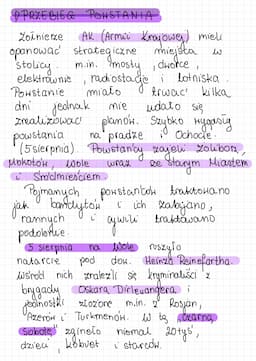 PRZEBIEG POWSTANIA
Żołnierze AK (Armii Krajowej) mieli
opanować strategiczne miejsca w
stolicy. m.in. mosty, dworce,
elektrownie, radiostacje i lotniska.
Powstanie miało trwać kilka
dni jednak nie udało się
zrealizować planów. Szybko wygasły
powstania na pradze i Ochocie.
(5 sierpnia). Powstańcy zajęli Żoliborz,
Mokotów, Wole wraz ze Starym Miastem
i Śródmieściem.
Pojmanych powstańców traktowano
jak bandytów i ich zabijano,
rannych i cywili traktowano
podobnie.
5 sierpnia na Wole ruszyło
natarcie pod dow. Heinza Reinefartha.
wśród nich znaleźli się kryminaliści z
brygady Oskara Dirlewangera i
jednostki złożone m.in. z Rosjan,
Azerów i Turkmenów. W tą "czarną
sobotę" zginęło niemal 20 tyś.
dzieci, kobiet i starców.